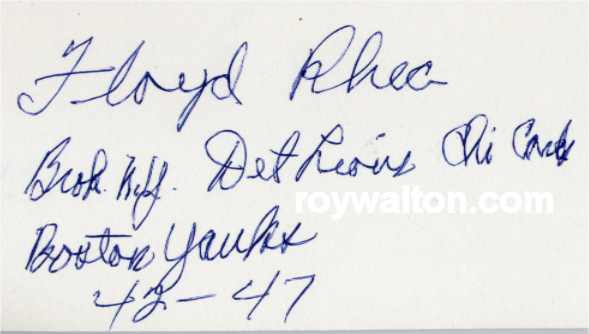 Floyd Rhea
Brok. N.Y. Det Lions Chi Cards
roywalton.com
Boston Yanks
42-47